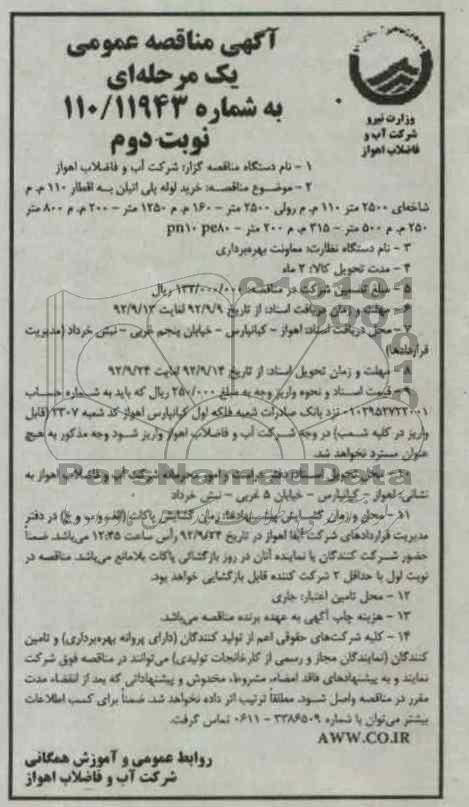 آگهی مناقصه عمومی
یک مرحله‌ای
به شماره ۱۱۰/۱۱۹۴۳
نوبت دوم
وزارت نیرو
شرکت آب و
فاضلاب اهواز
۱ - نام دستگاه مناقصه گزار: شرکت آب و فاضلاب اهواز
۲ - موضوع مناقصه: خرید لوله پلی اتیلن به اقطار ۱۱۰ م. م
شاخه‌ای ۲۵۰۰ متر ۱۱۰ م. م رولی ۲۵۰۰ متر - ۱۶۰ م. م ۱۲۵۰ متر - ۲۰۰ م. م ۸۰۰ متر
۲۵۰ م. م ۵۰۰ متر - ۳۱۵ م. م ۲۰۰ متر - pn۱۰ pe۸۰
۳ - نام دستگاه نظارت: معاونت بهره‌برداری
۴ - مدت تحویل کالا: ۲ ماه
۵ - مبلغ تضمین شرکت در مناقصه: ۱۳۲/۰۰۰/۰۰۰ ریال
۶ - مهلت و زمان دریافت اسناد: از تاریخ ۹۲/۹/۹ لغایت ۹۲/۹/۱۳
۷ - محل دریافت اسناد: اهواز - کیانپارس - خیابان پنجم غربی - نبش خرداد (مدیریت
قراردادها)
۸ - مهلت و زمان تحویل اسناد: از تاریخ ۹۲/۹/۱۴ لغایت ۹۲/۹/۲۴
۹ - قیمت اسناد و نحوه واریز وجه به مبلغ ۲۵۰/۰۰۰ ریال که باید به شماره حساب
نزد بانک صادرات شعبه فلکه اول کیانپارس اهواز کد شعبه ۲۳۰۷ (قابل
واریز در کلیه شعب) در وجه شرکت آب و فاضلاب اهواز واریز شود وجه مذکور به هیچ
عنوان مسترد نخواهد شد.
۱۰ - محل تحویل اسناد: دفتر حراست و امور محرمانه شرکت آب و فاضلاب اهواز به
نشانی: اهواز - کیانپارس - خیابان ۵ غربی - نبش خرداد
۱۱ - محل و زمان گشایش پیشنهادها: زمان گشایش پاکات (الف و ب و ج) در دفتر
مدیریت قراردادهای شرکت آبفا اهواز در تاریخ ۹۲/۹/۲۴ رأس ساعت ۱۲:۴۵ می‌باشد. ضمناً
حضور شرکت کنندگان یا نماینده آنان در روز بازگشائی پاکات بلامانع می‌باشد. مناقصه در
نوبت اول با حداقل ۲ شرکت کننده قابل بازگشایی خواهد بود.
۱۲ - محل تامین اعتبار: جاری
۱۳ - هزینه چاپ آگهی به عهده برنده مناقصه می‌باشد.
۱۴ - کلیه شرکت‌های حقوقی اعم از تولید کنندگان (دارای پروانه بهره‌برداری) و تامین
کنندگان (نمایندگان مجاز و رسمی از کارخانجات تولیدی) می‌توانند در مناقصه فوق شرکت
نمایند و به پیشنهادهای فاقد امضاء، مشروط، مخدوش و پیشنهاداتی که بعد از انقضاء مدت
مقرر در مناقصه واصل شود. مطلقاً ترتیب اثر داده نخواهد شد. ضمناً برای کسب اطلاعات
بیشتر می‌توان با شماره ۳۳۸۶۵۰۹ - ۰۶۱۱ تماس گرفت.
AWW.CO.IR
روابط عمومی و آموزش همگانی
شرکت آب و فاضلاب اهواز
ParsNamadData